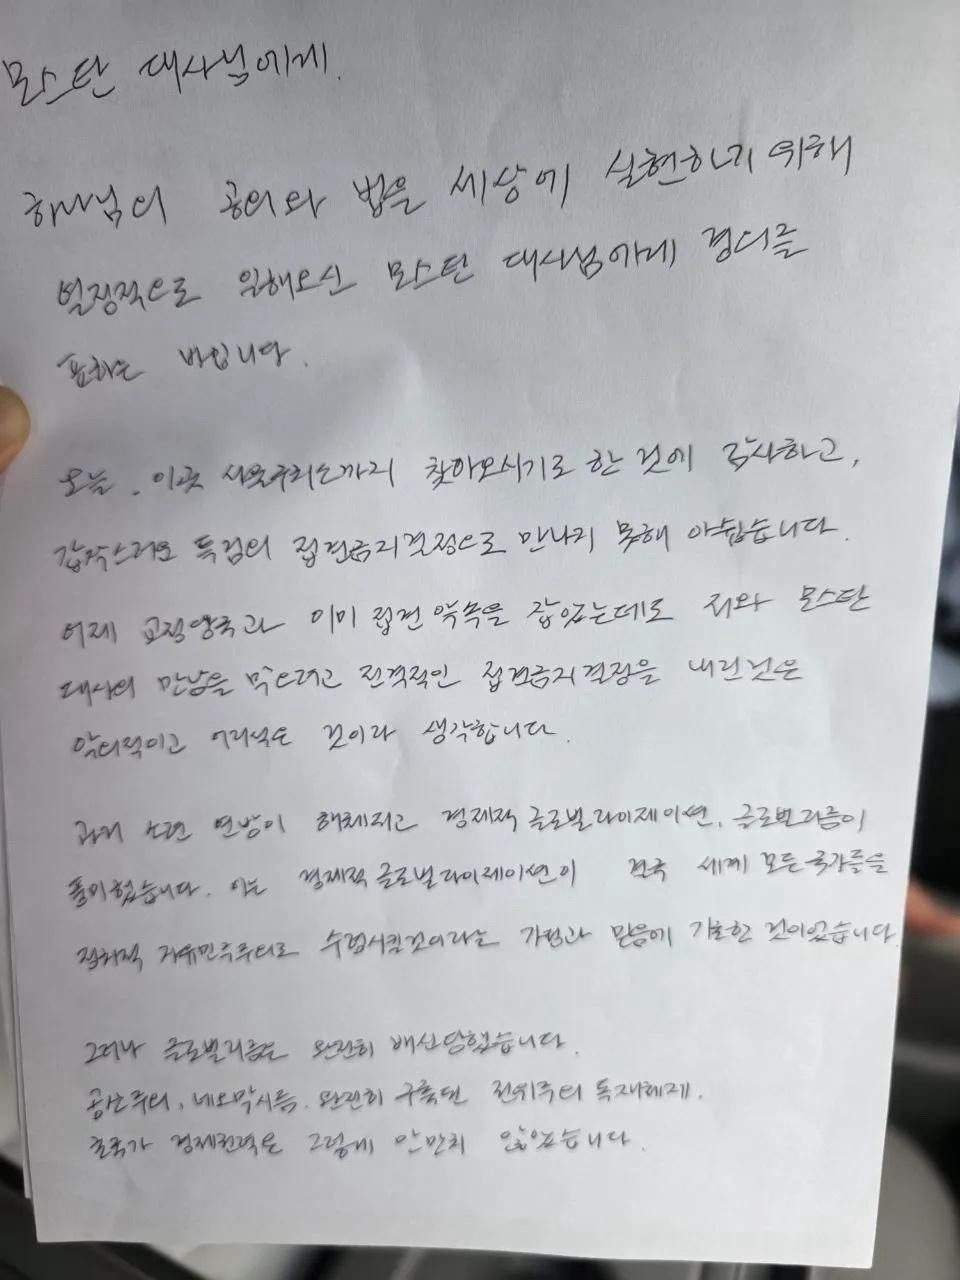 모스탄 대사님에게.
하나님의 공의와 법을 세상에 실현하기 위해
열정적으로 일해오신 모스탄 대사님에게 경의를
표하는 바입니다.
오늘, 이곳 서울구치소까지 찾아오시기로 한 것에 감사하고,
갑작스러운 특검의 접견금지결정으로 만나지 못해 아쉽습니다.
어제 교정당국과 이미 접견 약속을 잡았는데도 저와 모스탄
대사의 만남을 막으려고 전격적인 접견금지결정을 내린것은
악의적이고 어리석은 것이라 생각합니다.
과거 소련 연방이 해체되고 경제적 글로벌라이제이션, 글로벌리즘이
풍미했습니다. 이는 경제적 글로벌라이제이션이 전국 세계 모든 국가들을
정치적 자유민주주의로 수렴시킬것이라는 가정과 믿음에 기초한 것이었습니다.
그러나 글로벌리즘은 완전히 배신당했습니다.
공산주의, 네오막시즘, 완전히 구축된 전위주의 독재체제,
초국가 경제권력은 그렇게 안만치 않았습니다.